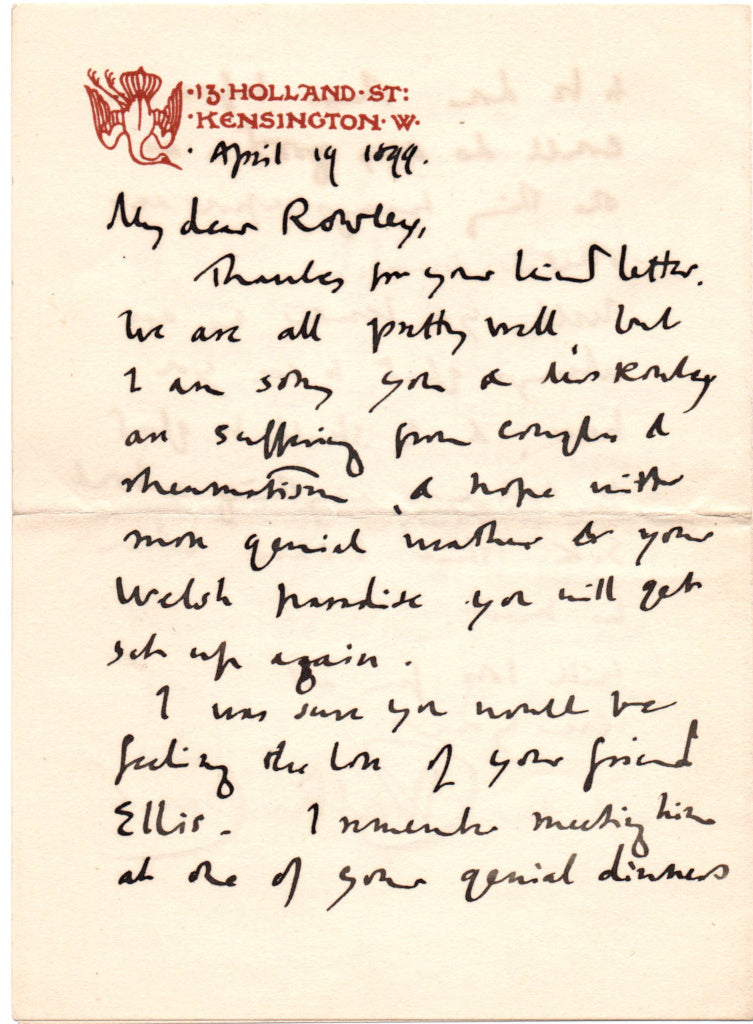 ·13·HOLLAND·ST:
·KENSINGTON·W·
· April 19 1899.
My dear Rowley,
Thanks for your kind letter.
We are all pretty well, but
I am sorry you & Mrs Rowley
are suffering from coughs &
rheumatism, & hope with
more genial weather & your
Welsh paradise you will get
set up again.
I was sure you would be
feeling the loss of your friend
Ellis. I remember meeting him
at one of your genial dinners